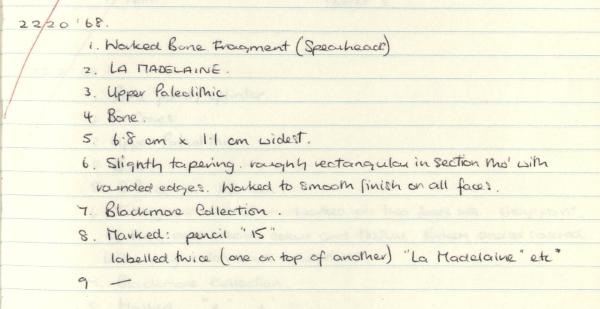 2220 '68.
1. Worked Bone Fragment (Spearhead?)
2. LA MADELAINE.
3. Upper Paleolithic
4 Bone.
5 6.8 cm x 1.1 cm widest.
6. Slightly tapering. roughly rectangular in section tho' with
rounded edges. Worked to smooth finish on all faces.
7. Blackmore Collection.
8. Marked: pencil "15"
labelled twice (one on top of another) "La Madelaine" etc"
9 —